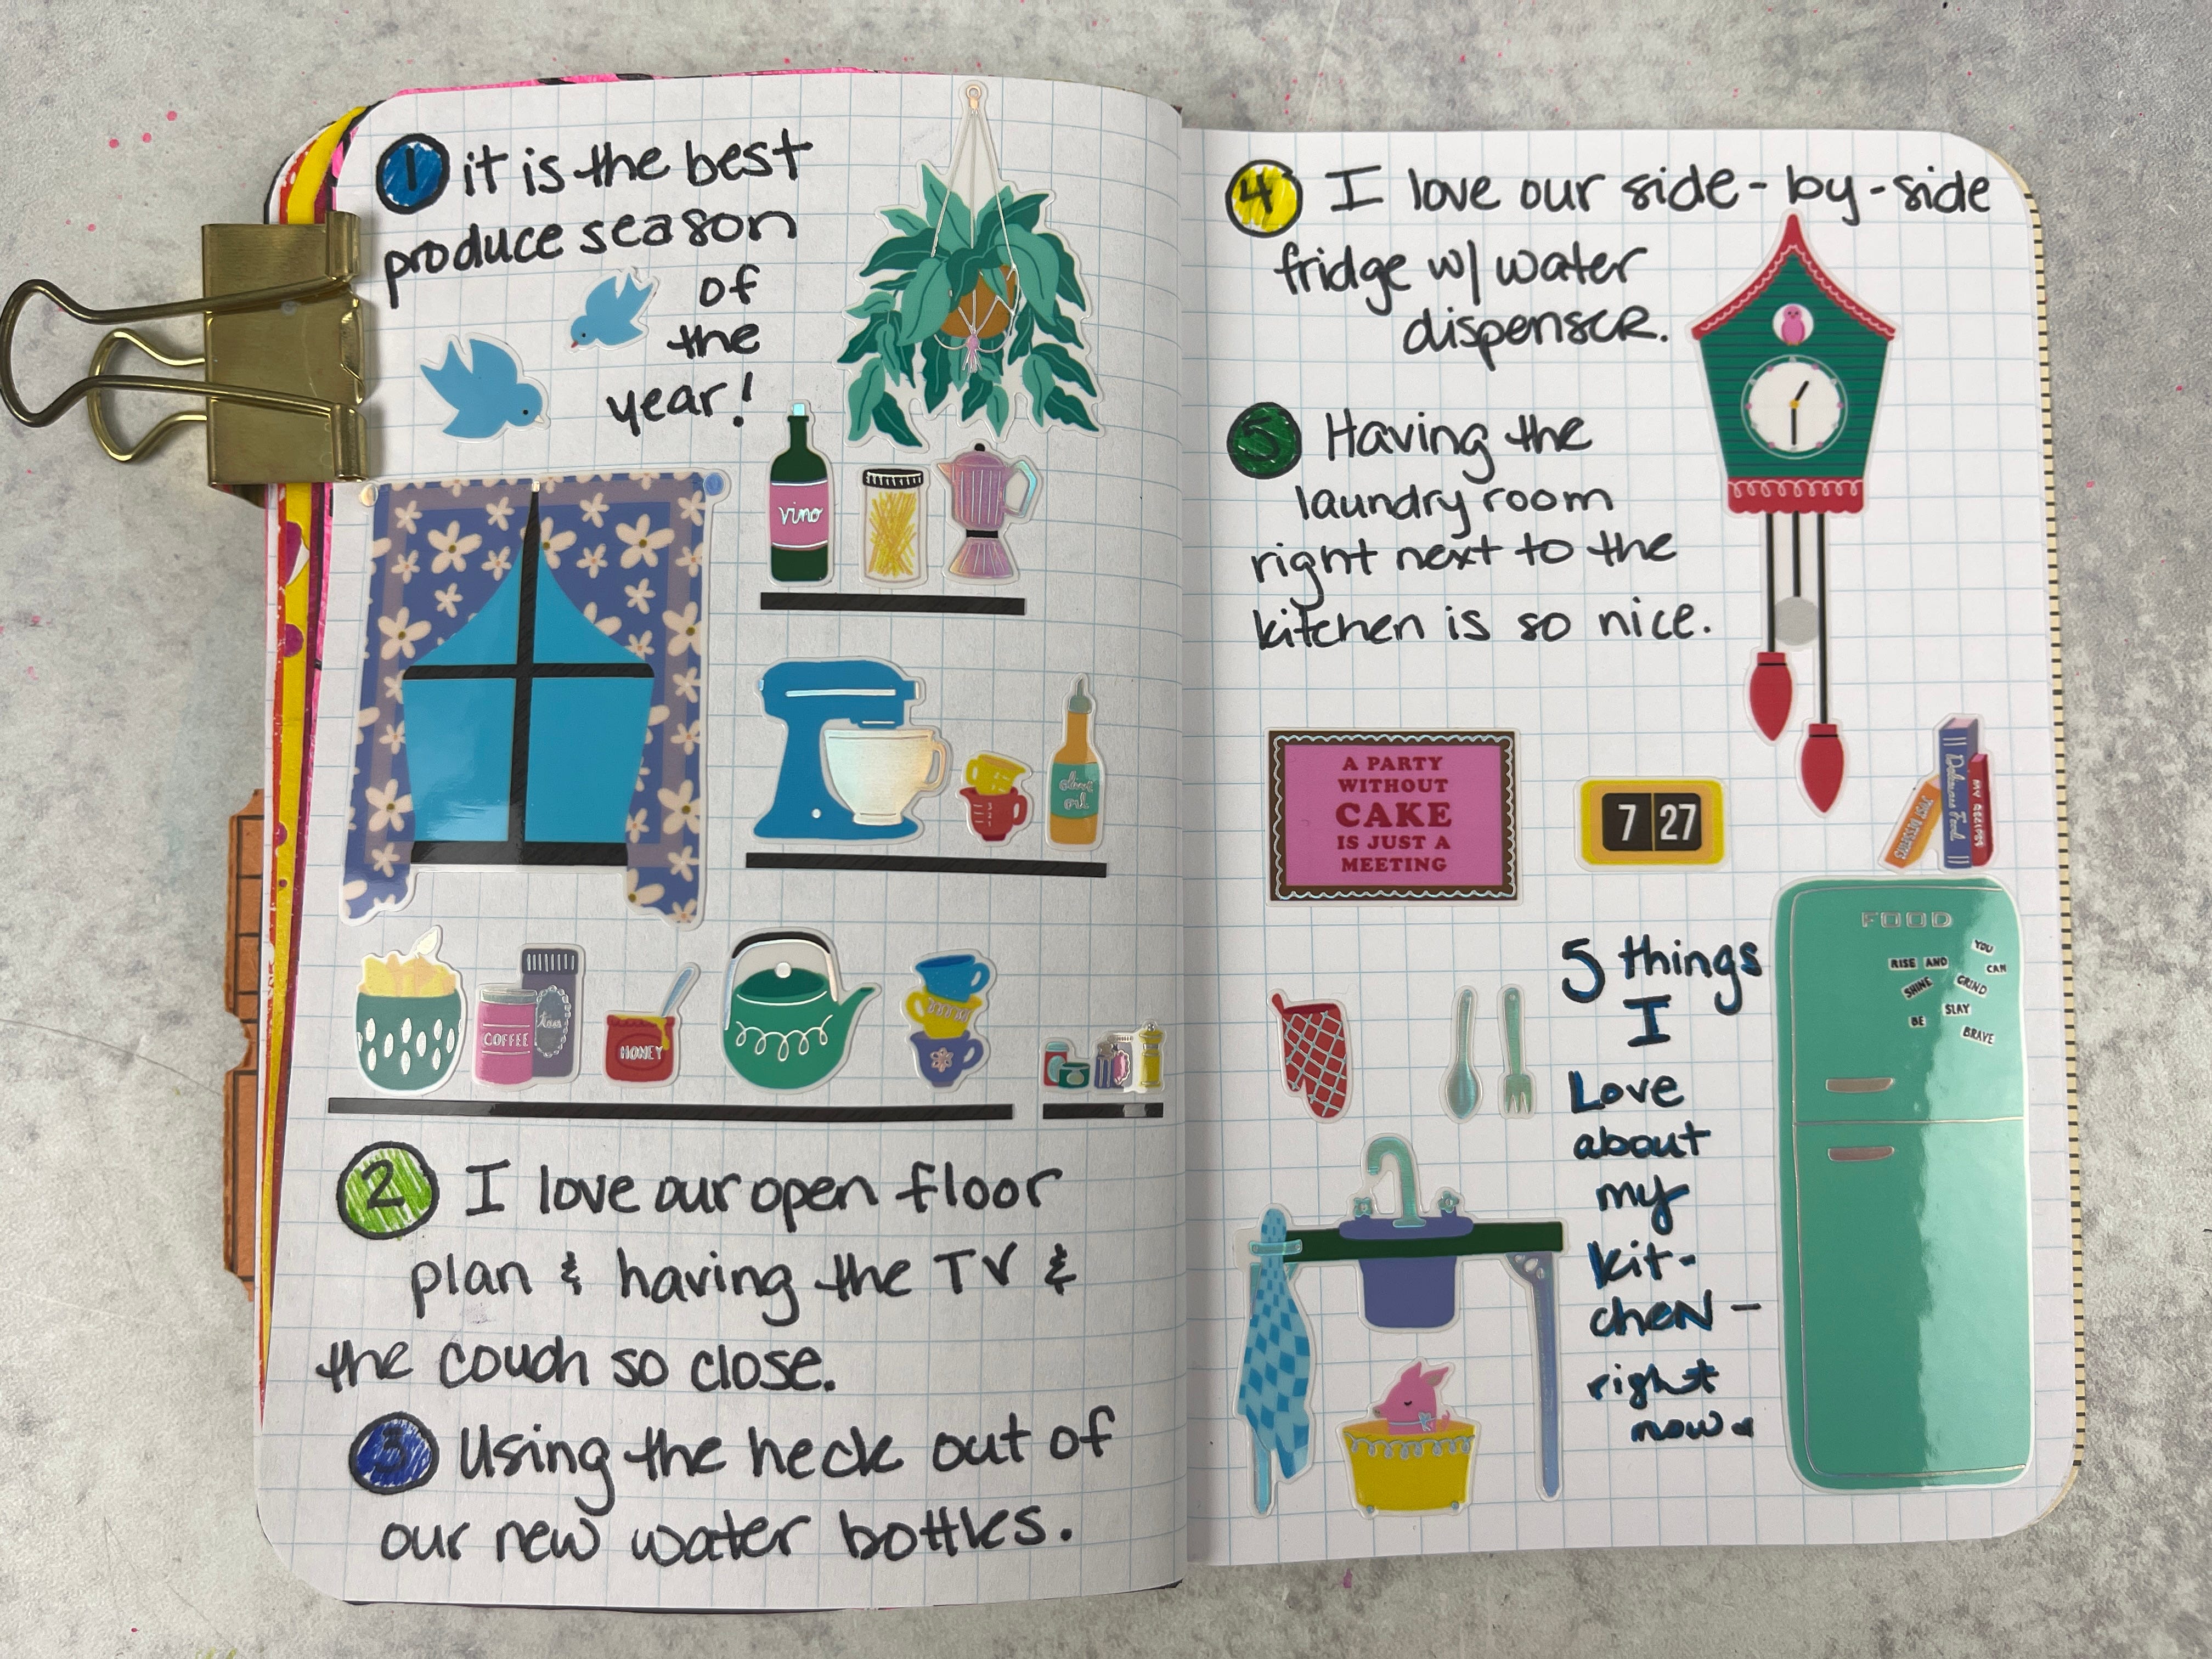 1 it is the best
produce season
of
the
year!
vino
olive
oil
COFFEE
tea
HONEY
2 I love our open floor
plan & having the TV &
the couch so close.
3 Using the heck out of
our new water bottles.
4 I love our side-by-side
fridge w/ water
dispenser.
5 Having the
laundry room
right next to the
kitchen is so nice.
A PARTY
WITHOUT
CAKE
IS JUST A
MEETING
7 27
Delicious Food
MY RECIPES
5 things
I
Love
about
my
kit-
chen -
right
now
FOOD
YOU
RISE AND
CAN
SHINE
GRIND
SLAY
BE
BRAVE